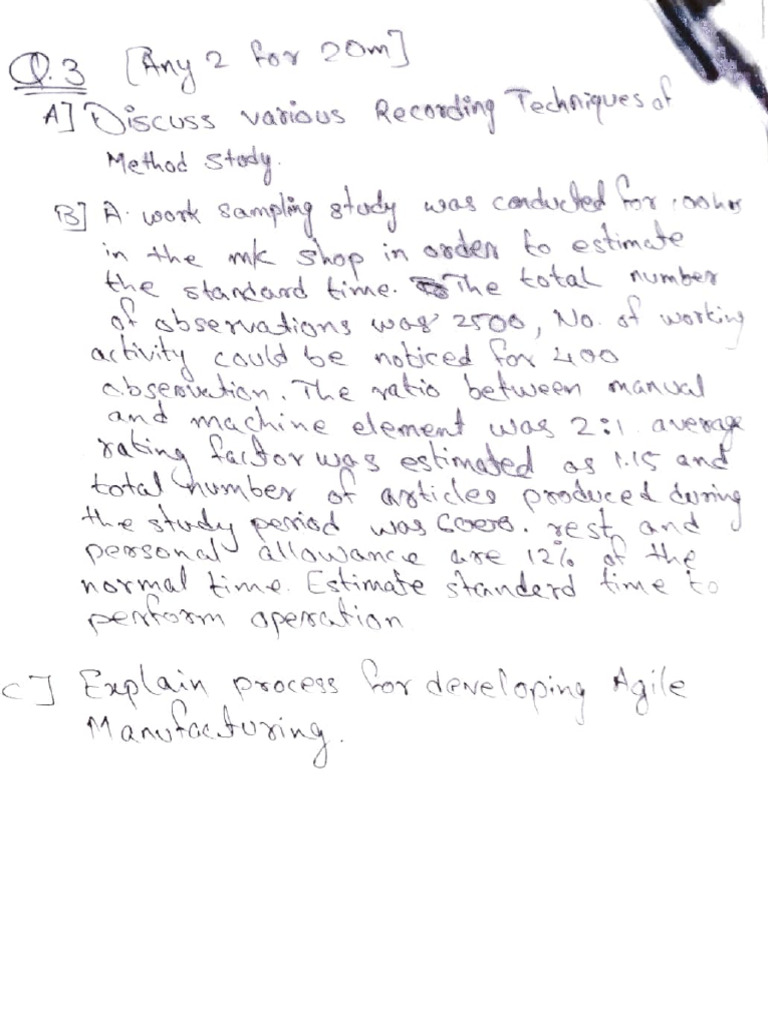 Q.3 [Any 2 for 20m]
A] Discuss various Recording Techniques of
Method study.
B] A work sampling study was conducted for
in the m/c shop in order to estimate
the standard time. The total number
of observations was 2500, No. of working
activity could be noticed for 400
observation. The ratio between manual
and machine element was 2:1 average
rating factor was estimated as 1.15 and
total number of articles produced during
the study period was rest and
personal allowance are 12% of the
normal time. Estimate standerd time to
perform operation
C] Explain process for developing Agile
Manufacturing.